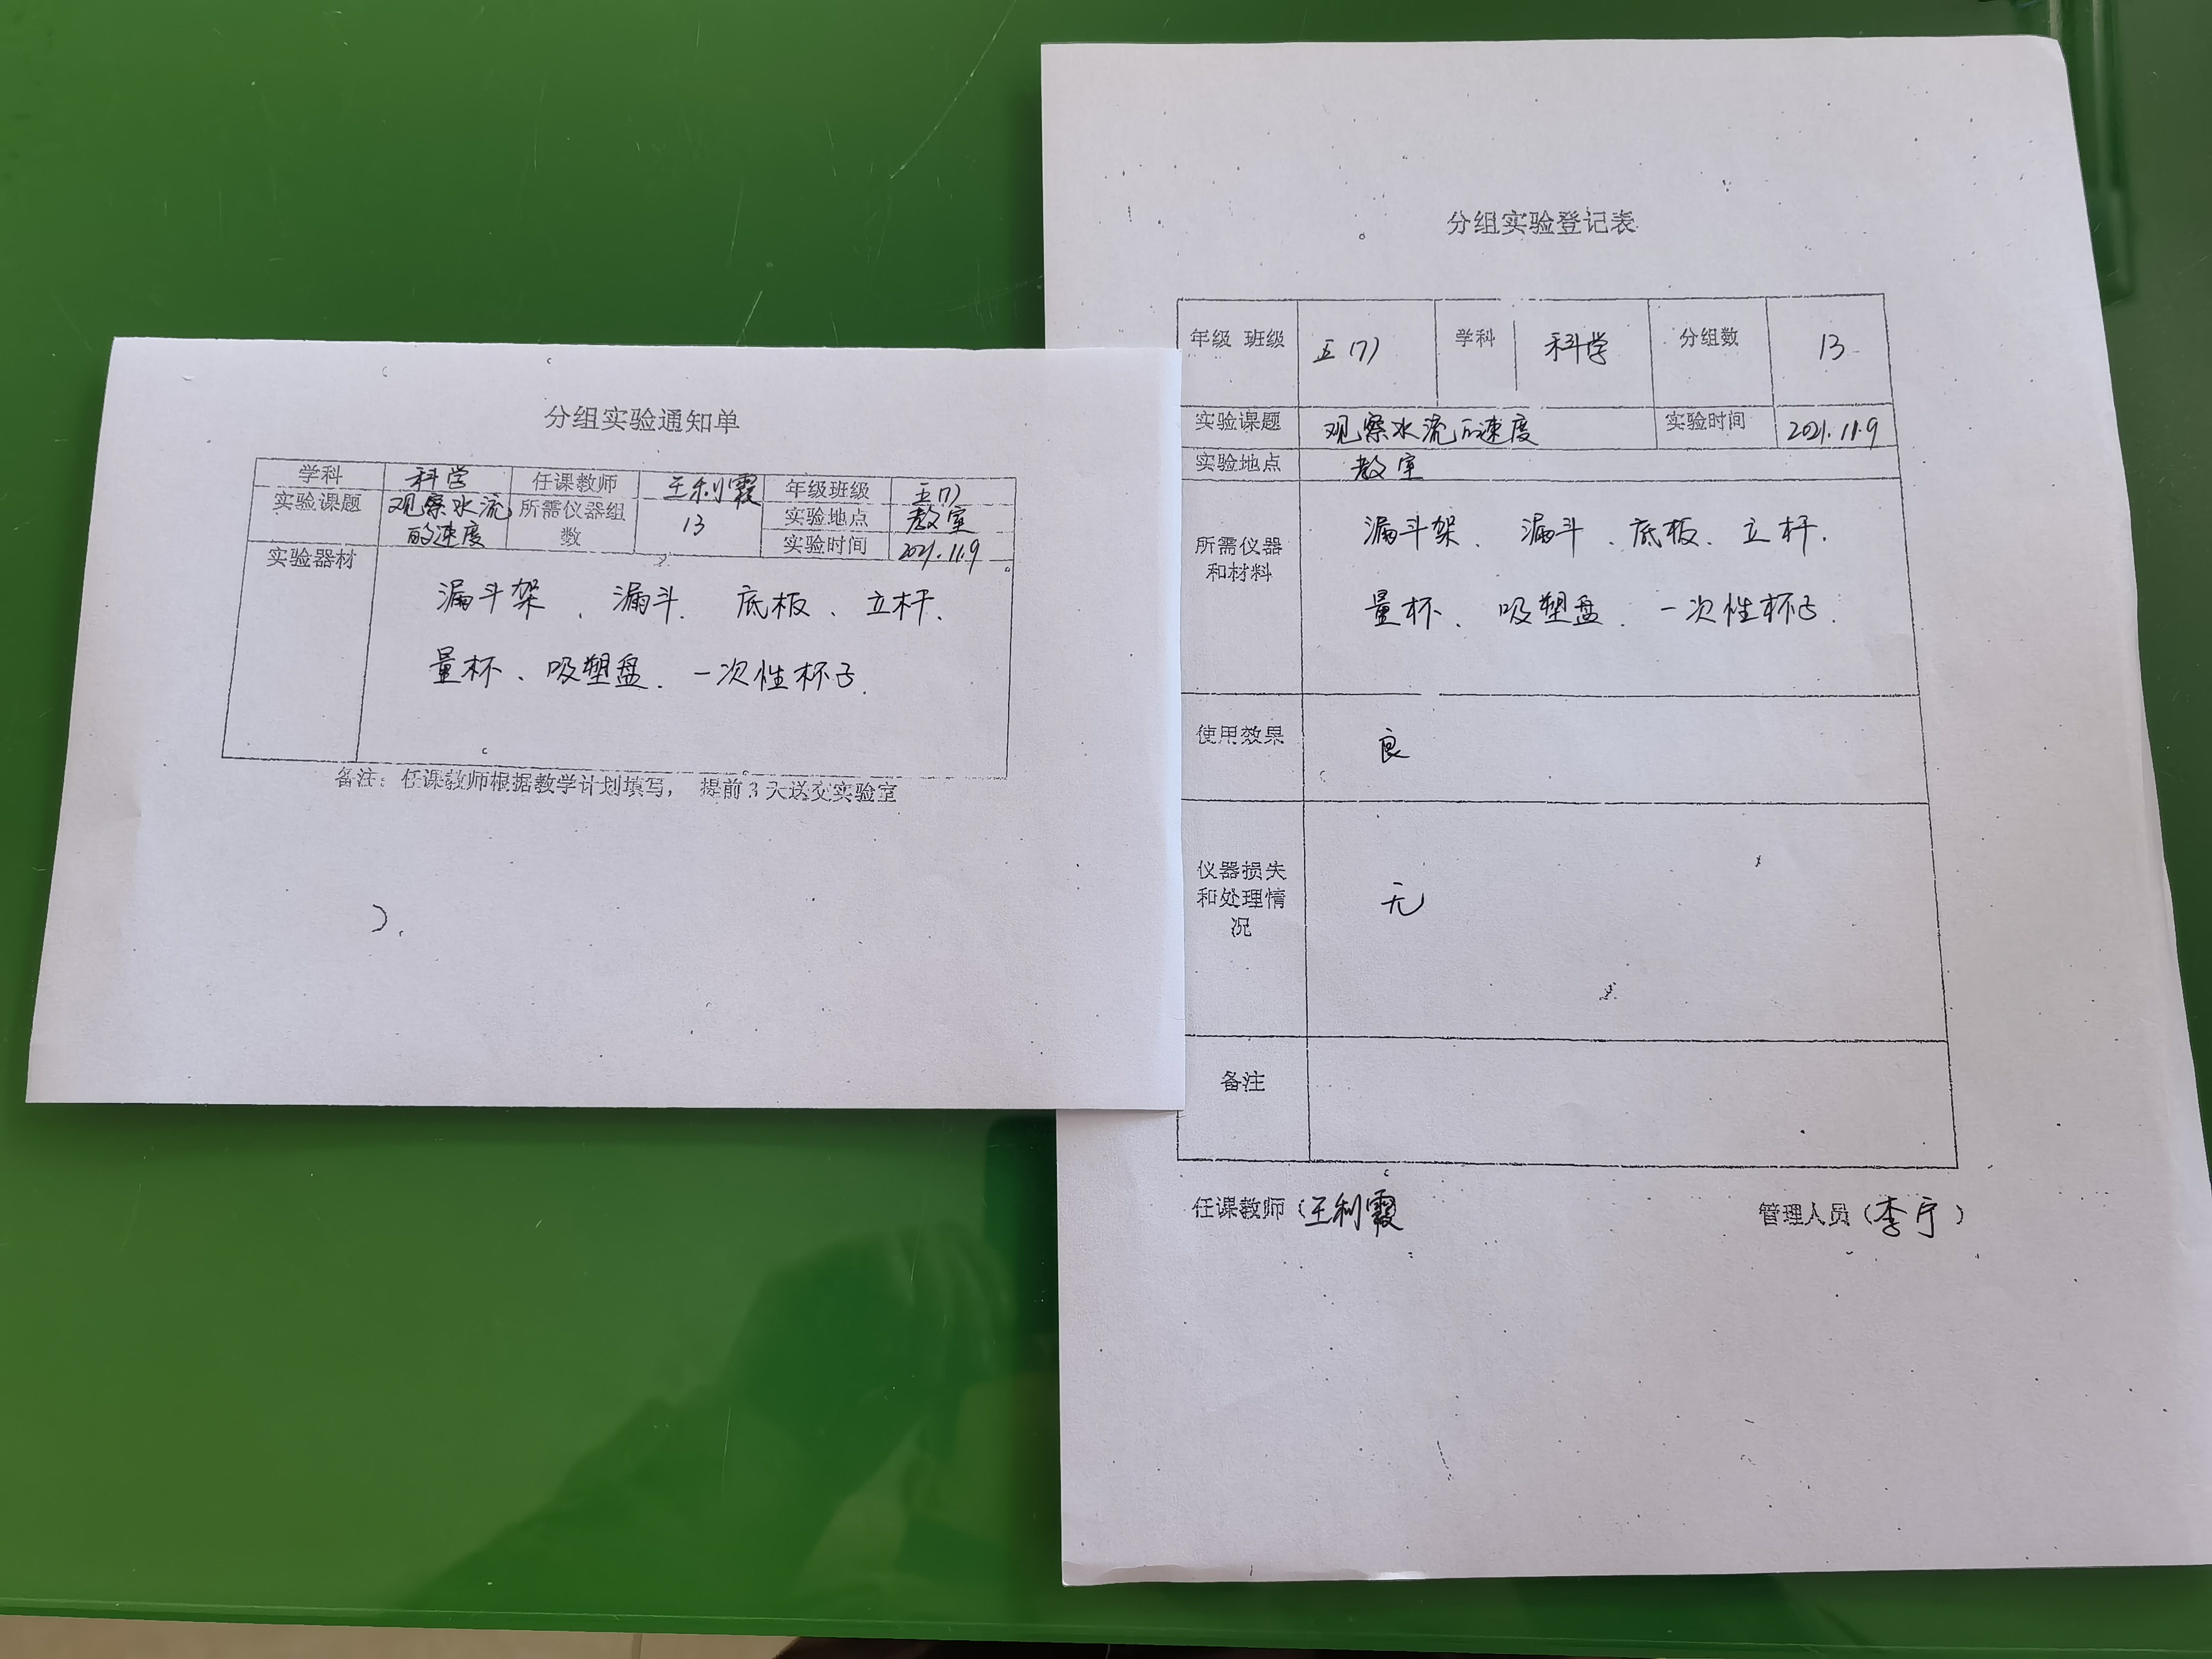 分组实验通知单
学科 科学 任课教师 王利霞 年级班级 五(7)
实验课题 观察水流的速度 所需仪器组数 13 实验地点 教室
实验时间 2021.11.9
实验器材 漏斗架、漏斗、底板、立杆、
量杯、吸塑盘、一次性杯子.
备注：任课教师根据教学计划填写， 提前3天送交实验室
分组实验登记表
年级 班级 五(7) 学科 科学 分组数 13
实验课题 观察水流的速度 实验时间 2021.11.9
实验地点 教室
所需仪器和材料 漏斗架、漏斗、底板、立杆.
量杯、吸塑盘、一次性杯子.
使用效果 良
仪器损失和处理情况 无
备注
任课教师（王利霞 管理人员（李宁）